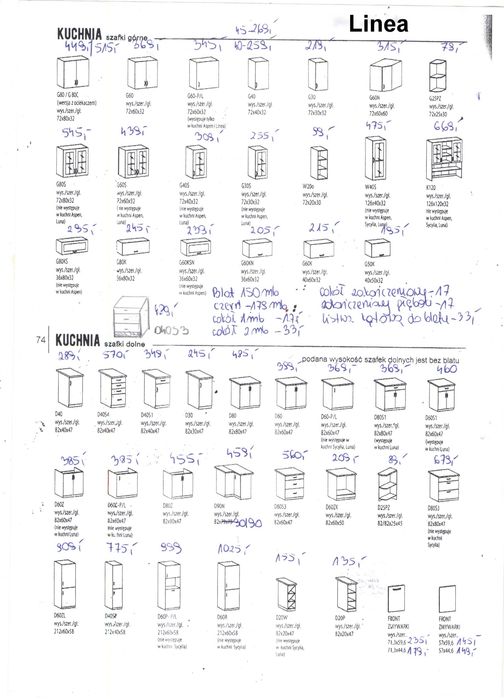 Linea
KUCHNIA szafki górne
45-269,-
449,- 515,- 369,- 345,- 219,- 315,- 79,-
G80 / G 80C G60 G60-P/L G40 G30 G60N G25PZ
(wersja z ociekaczem) wys./szer./gł. wys./szer./gł. wys./szer./gł. wys./szer./gł. wys./szer./gł. wys./szer./gł.
wys./szer./gł. 72x60x32 72x60x32 72x40x32 72x30x32 72x60x60 72x25x30
72x80x32 (występuje tylko
w kuchni Aspen i Luna)
545,- 439,- 309,- 255,- 99,- 475,- 669,-
G80S G60S G40S G30S W20o W40S K120
wys./szer./gł. wys./szer./gł. wys./szer./gł. wys./szer./gł. wys./szer./gł. wys./szer./gł. wys./szer./gł.
72x80x32 72x60x32 72x40x32 72x30x32 72x20x30 126x40x32 126x120x32
(nie występuje (nie występuje (nie występuje (nie występuje (nie występuje (nie występuje
w kuchni Aspen, w kuchni Aspen, w kuchni Aspen, w kuchni Aspen, w kuchni Aspen, w kuchni Aspen,
Luna) Luna) Luna) Luna) Luna) Luna)
295,- 245,- 205,- 215,- 195,-
G80KS G80K G60KSN G60KN G60K G50K
wys./szer./gł. wys./szer./gł. wys./szer./gł. wys./szer./gł. wys./szer./gł. wys./szer./gł.
36x80x32 36x80x32 36x60x32 36x60x32 36x60x32 40x50x32
(nie występuje (nie występuje
w kuchni Aspen, w kuchni Aspen,
Luna) Luna)
Blat 150 mb
czern -179 mb
cokół 1mb -17,-
cokół 2 mb -33,-
cokół zakończeniowy -17
zakończeniowy
listwa do blatu -33,-
429,-
D40S3
74
KUCHNIA szafki dolne
podana wysokość szafek dolnych jest bez blatu
289,- 570,- 349,- 245,- 485,- 399,- 369,- 369,- 460
D40 D40S4 D40S1 D30 D80 D60 D60-P/L D80S1 D60S1
wys./szer./gł. wys./szer./gł. wys./szer./gł. wys./szer./gł. wys./szer./gł. wys./szer./gł. wys./szer./gł. wys./szer./gł. wys./szer./gł.
82x40x47 82x40x47 82x40x47 82x30x47 82x80x47 82x60x47 82x60x47 82x80x47 82x60x47
385,- 385,- 455,- 459,- 560,- 209,- 89,- 679,-
D60Z D60Z-P/L D80Z D90N D60S3 D60ZK D25PZ D80S3
wys./szer./gł. wys./szer./gł. wys./szer./gł. wys./szer./gł. wys./szer./gł. wys./szer./gł. wys./szer./gł. wys./szer./gł.
82x60x47 82x60x47 82x80x47 90/90 82x60x47 82x60x50 82/82x25x45 82x80x47
809,- 775,- 999 1025,- 155,- 135,-
D60ZL D40SP D60P D60R D20W D20P FRONT FRONT
wys./szer./gł. wys./szer./gł. wys./szer./gł. wys./szer./gł. wys./szer./gł. wys./szer./gł. ZMYWARKI ZMYWARKI
212x60x58 212x40x58 212x60x58 212x60x58 82x20x47 82x20x47 wys./szer. wys./szer.
71,3x59,6 235,- 57x59,6 145,-
71,3x44,6 179,- 57x44,6 149,-